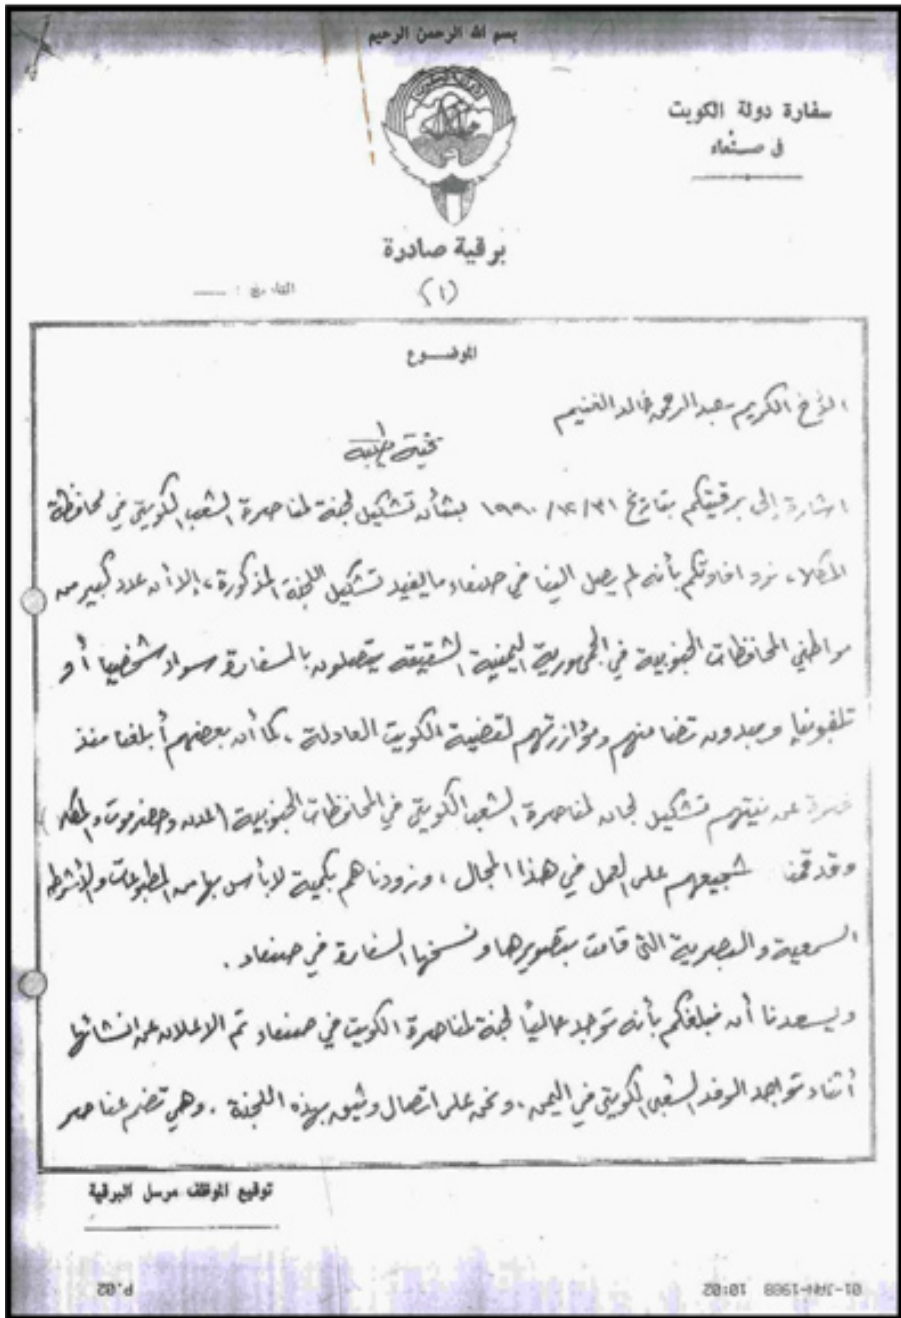 بسم الله الرحمن الرحيم
سفارة دولة الكويت
في صنعاء
برقية صادرة
(١)
التاريخ :
الموضوع
الأخ الكريم عبدالرحمن خالد الغنيم
تحية طيبة
اشارة إلى برقيتكم بتاريخ ٣١/١٢/١٩٩٠ بشأن تشكيل لجنة لمناصرة الشعب الكويتي في محافظة
المكلا، نود افادتكم بأنه لم يصل الينا في صنعاء ما يفيد تشكيل اللجنة المذكورة، إلا أن عدد كبير من
مواطني المحافظات الجنوبية في الجمهورية اليمنية الشقيقة يتصلون بالسفارة سواء شخصيا أو
تلفونيا ويبدون تضامنهم ومؤازرتهم لقضية الكويت العادلة، كما أن بعضهم أبلغنا منذ
فترة عن نيتهم تشكيل لجان لمناصرة الشعب الكويتي في المحافظات الجنوبية (عدن وحضرموت والمكلا)
وقد قمنا شجيعهم على العمل في هذا المجال، وزودناهم بكمية لا بأس بها من المطبوعات والأشرطة
السمعية والبصرية التي قامت بتصويرها ونسخها السفارة في صنعاء.
ويسعدنا أن نبلغكم بأنه توجد حالياً لجنة لمناصرة الكويت في صنعاء تم الاعلان عن انشائها
أثناء تواجد الوفد الشعبي الكويتي في اليمن، ونحن على اتصال وثيق بهذه اللجنة. وهي تضم عناصر
توقيع الموظف مرسل البرقية
P.02
01-JAN-1988 10:02